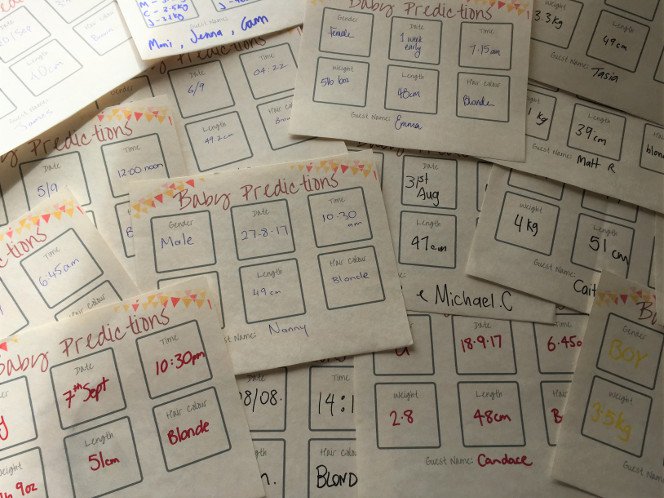 Guest Name:
M -
C - 2.5kg
J - 3.1kg
Mimi, Jenna, Cam
Baby Predictions
Gender
Date
Time
Female
1 week
early
7.15am
Weight
Length
Hair Colour
5lb 6oz
48cm
Blonde
Guest Name: Emma
3.3kg
49cm
Guest Name: Tasia
Date
Time
6/9
04:22
Length
Hair Colour
49.2cm
Predictions
Date
Time
5/9
12:00 noon
kg
39cm
Guest Name: Matt R
Baby Predictions
Gender
Date
Time
Male
27-8-17
10.30
am
Length
Hair Colour
49cm
Blonde
Guest Name: Nanny
Date
31st
Aug
Length
47cm
Michael.C
Weight
Length
4kg
51cm
Guest Name:
Time
6:45am
Hair Colour
Baby Predictions
Date
Time
7th Sept
10:30pm
Weight
Length
Hair Colour
9oz
51cm
Blonde
Time
/08.
Date
Time
18.9.17
Weight
Length
2.8
48cm
Guest Name: Candace
Gender
BOY
Weight
3.5kg